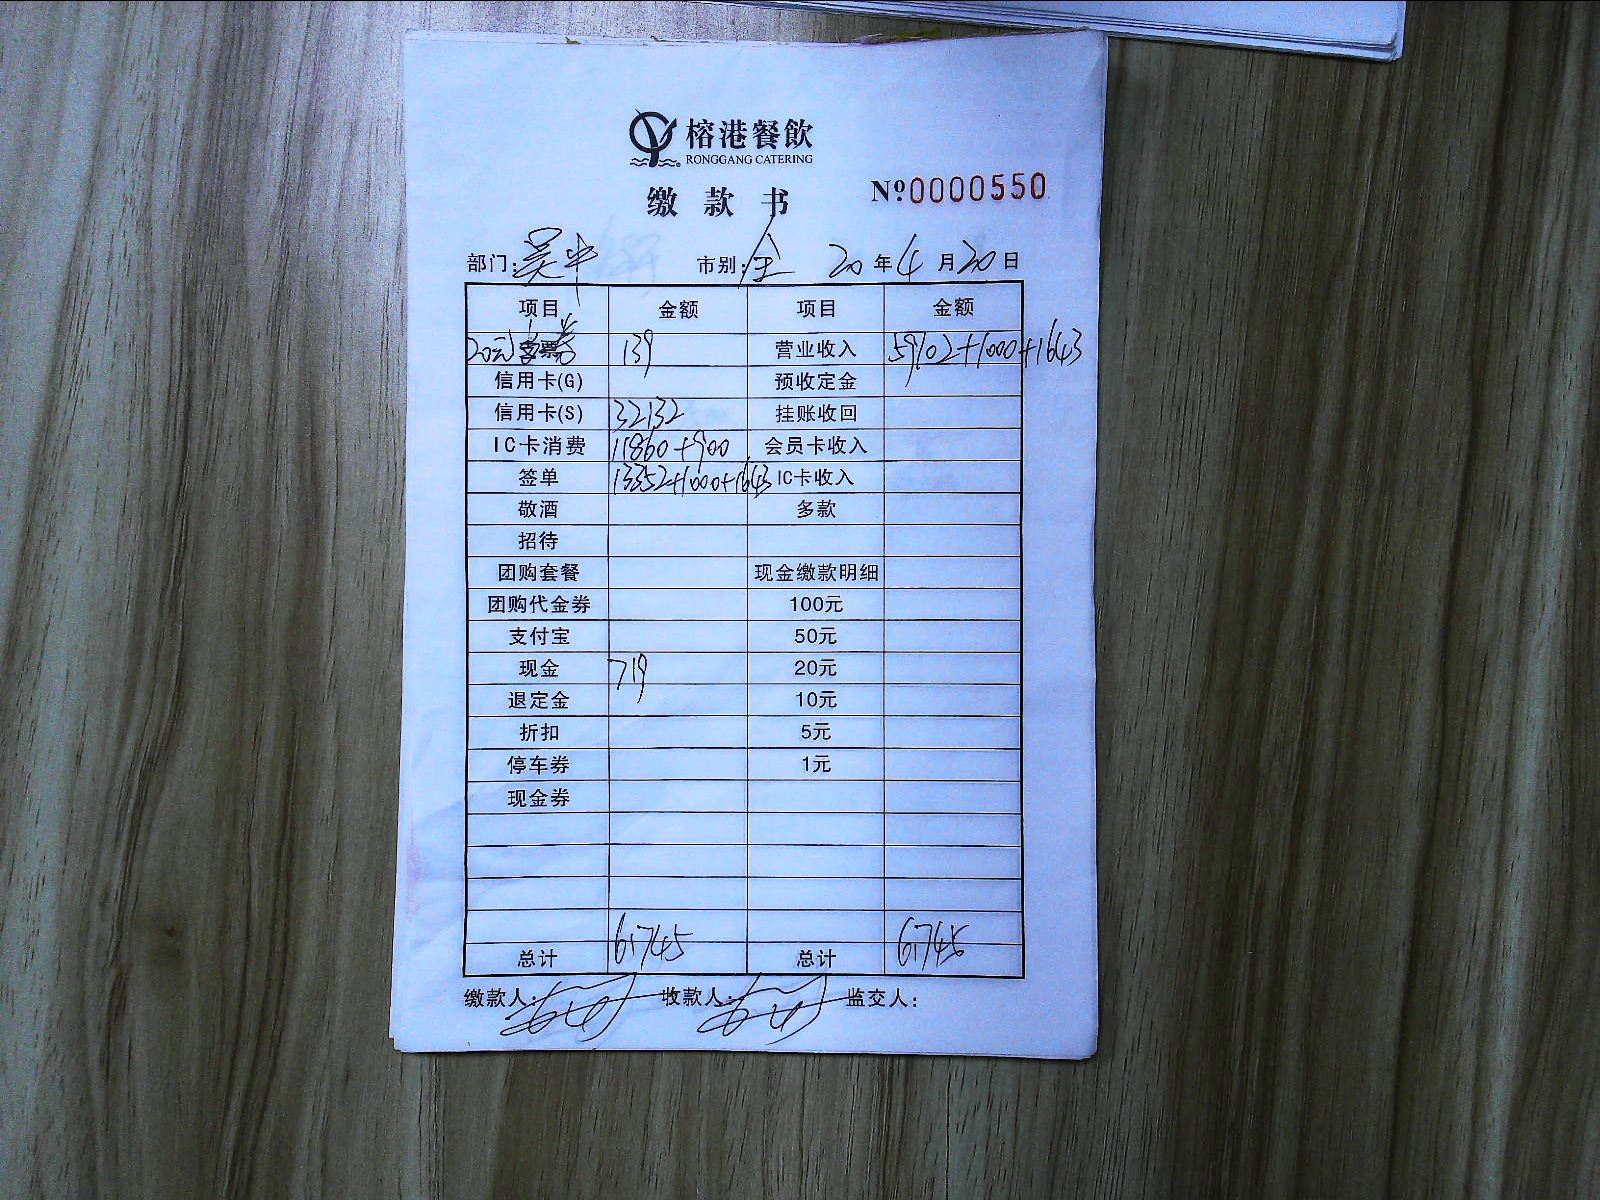 榕港餐飲
RONGGANG CATERING
缴款书 №0000550
部门：吴中 市别：全 20年4月20日
项目 金额 项目 金额
20元 券 139 营业收入 59102+1000+1643
信用卡(G) 预收定金
信用卡(S) 32132 挂账收回
IC卡消费 11860+900 会员卡收入
签单 13352+1000+1643 IC卡收入
敬酒 多款
招待
团购套餐 现金缴款明细
团购代金券 100元
支付宝 50元
现金 719 20元
退定金 10元
折扣 5元
停车券 1元
现金券
总计 61745 总计 61745
缴款人： 收款人： 监交人：